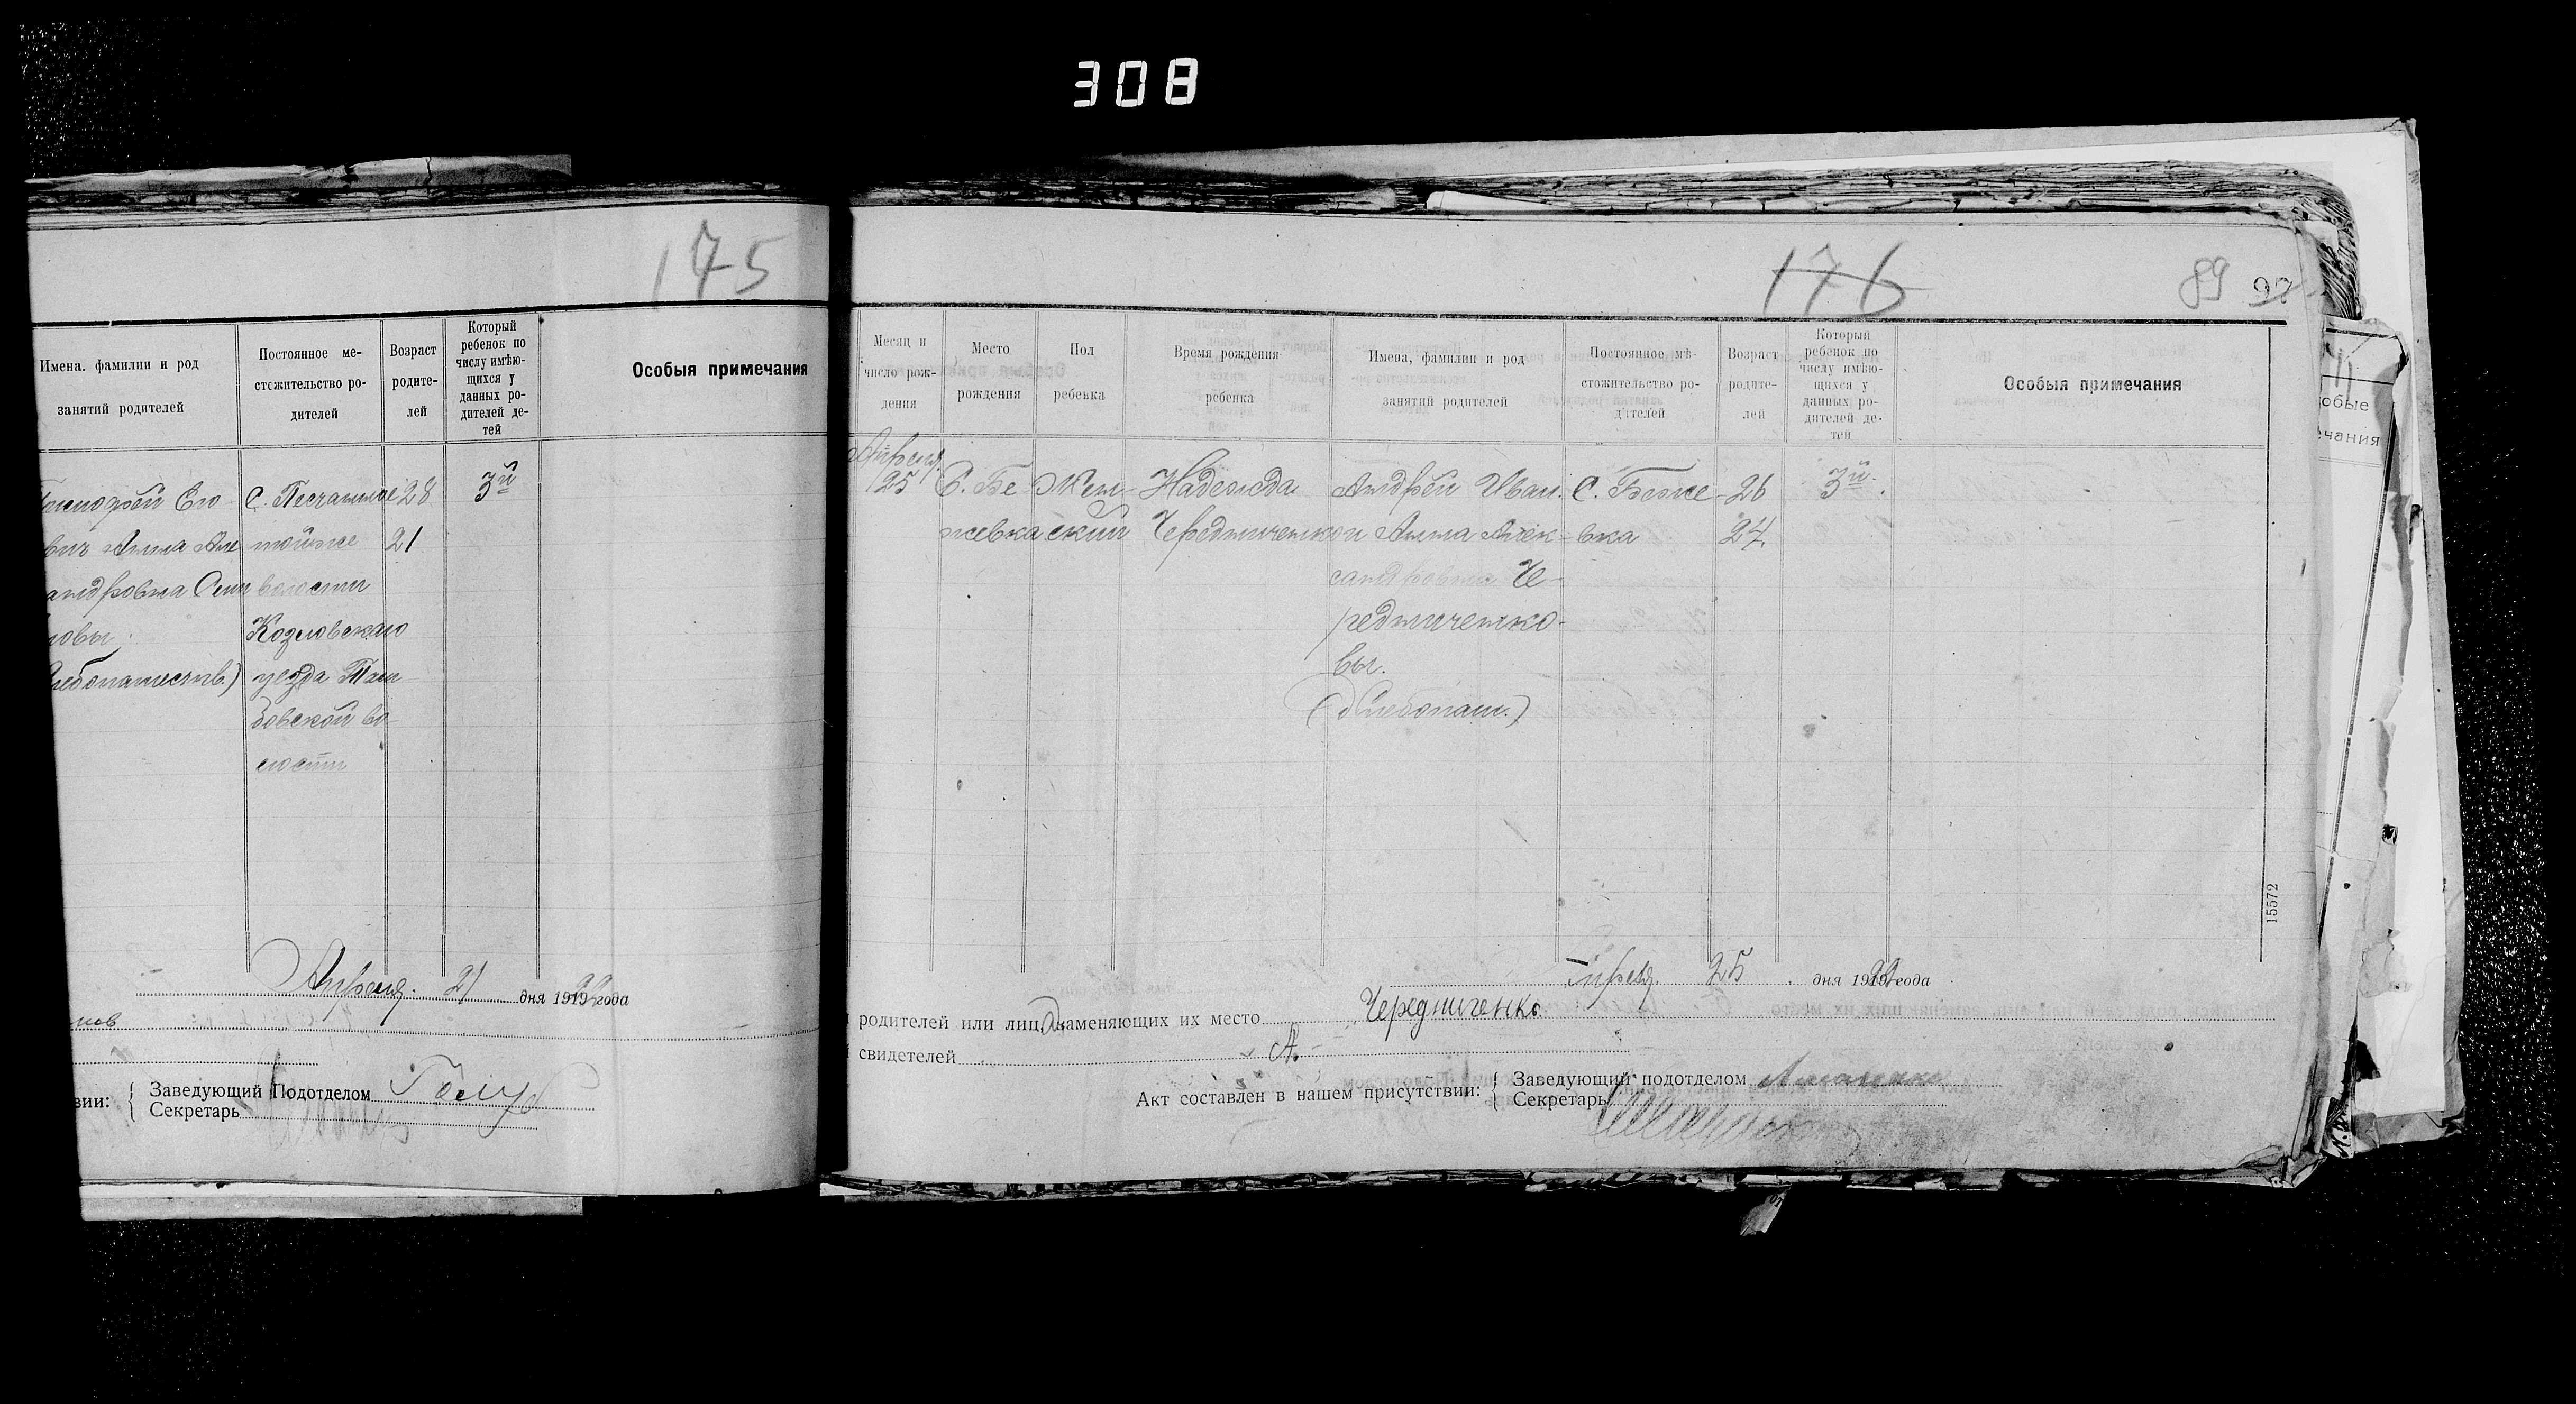 308
175
Имена. фамилии и род занятий родителей
Постоянное ме-
стожительство ро-
дителей
Возраст
родите-
лей
Который
ребенок по
числу имѣю-
щихся у
данных ро-
дителей де-
тей
Особыя примечания
С. Песчанное 28 3й
вич Анна Але тойже 21
андровна волости
новы. Козловскаго
уезда Там
бовской во
лости
Апреля 21 дня 1919 года
нов
вии:
Заведующий Подотделом Голуб
Секретарь
176
89
Месяц и
число рож-
дения
Место
рождения
Пол
ребенка
Время рождения
ребенка
Имена, фамилии и род
занятий родителей
Постоянное мѣ-
стожительство ро-
дителей
Возраст
родите-
лей
Который
ребенок по
числу имѣю-
щихся у
данных ро-
дителей де-
тей
Особыя примечания
Апреля
25 С. Бе Жен- Надежда Андрей Иван. С. Беже- 26 3й.
жевка ский Чередниченко и Анна Алек- вка 24.
сандровна Че-
редниченко-
вы.
(Хлебопаш.)
15572
Апреля 25 дня 1919 года
родителей или лиц заменяющих их место Чередниченко
свидетелей А.
Акт составлен в нашем присутствии:
Заведующий подотделом
Секретарь
обые
чания